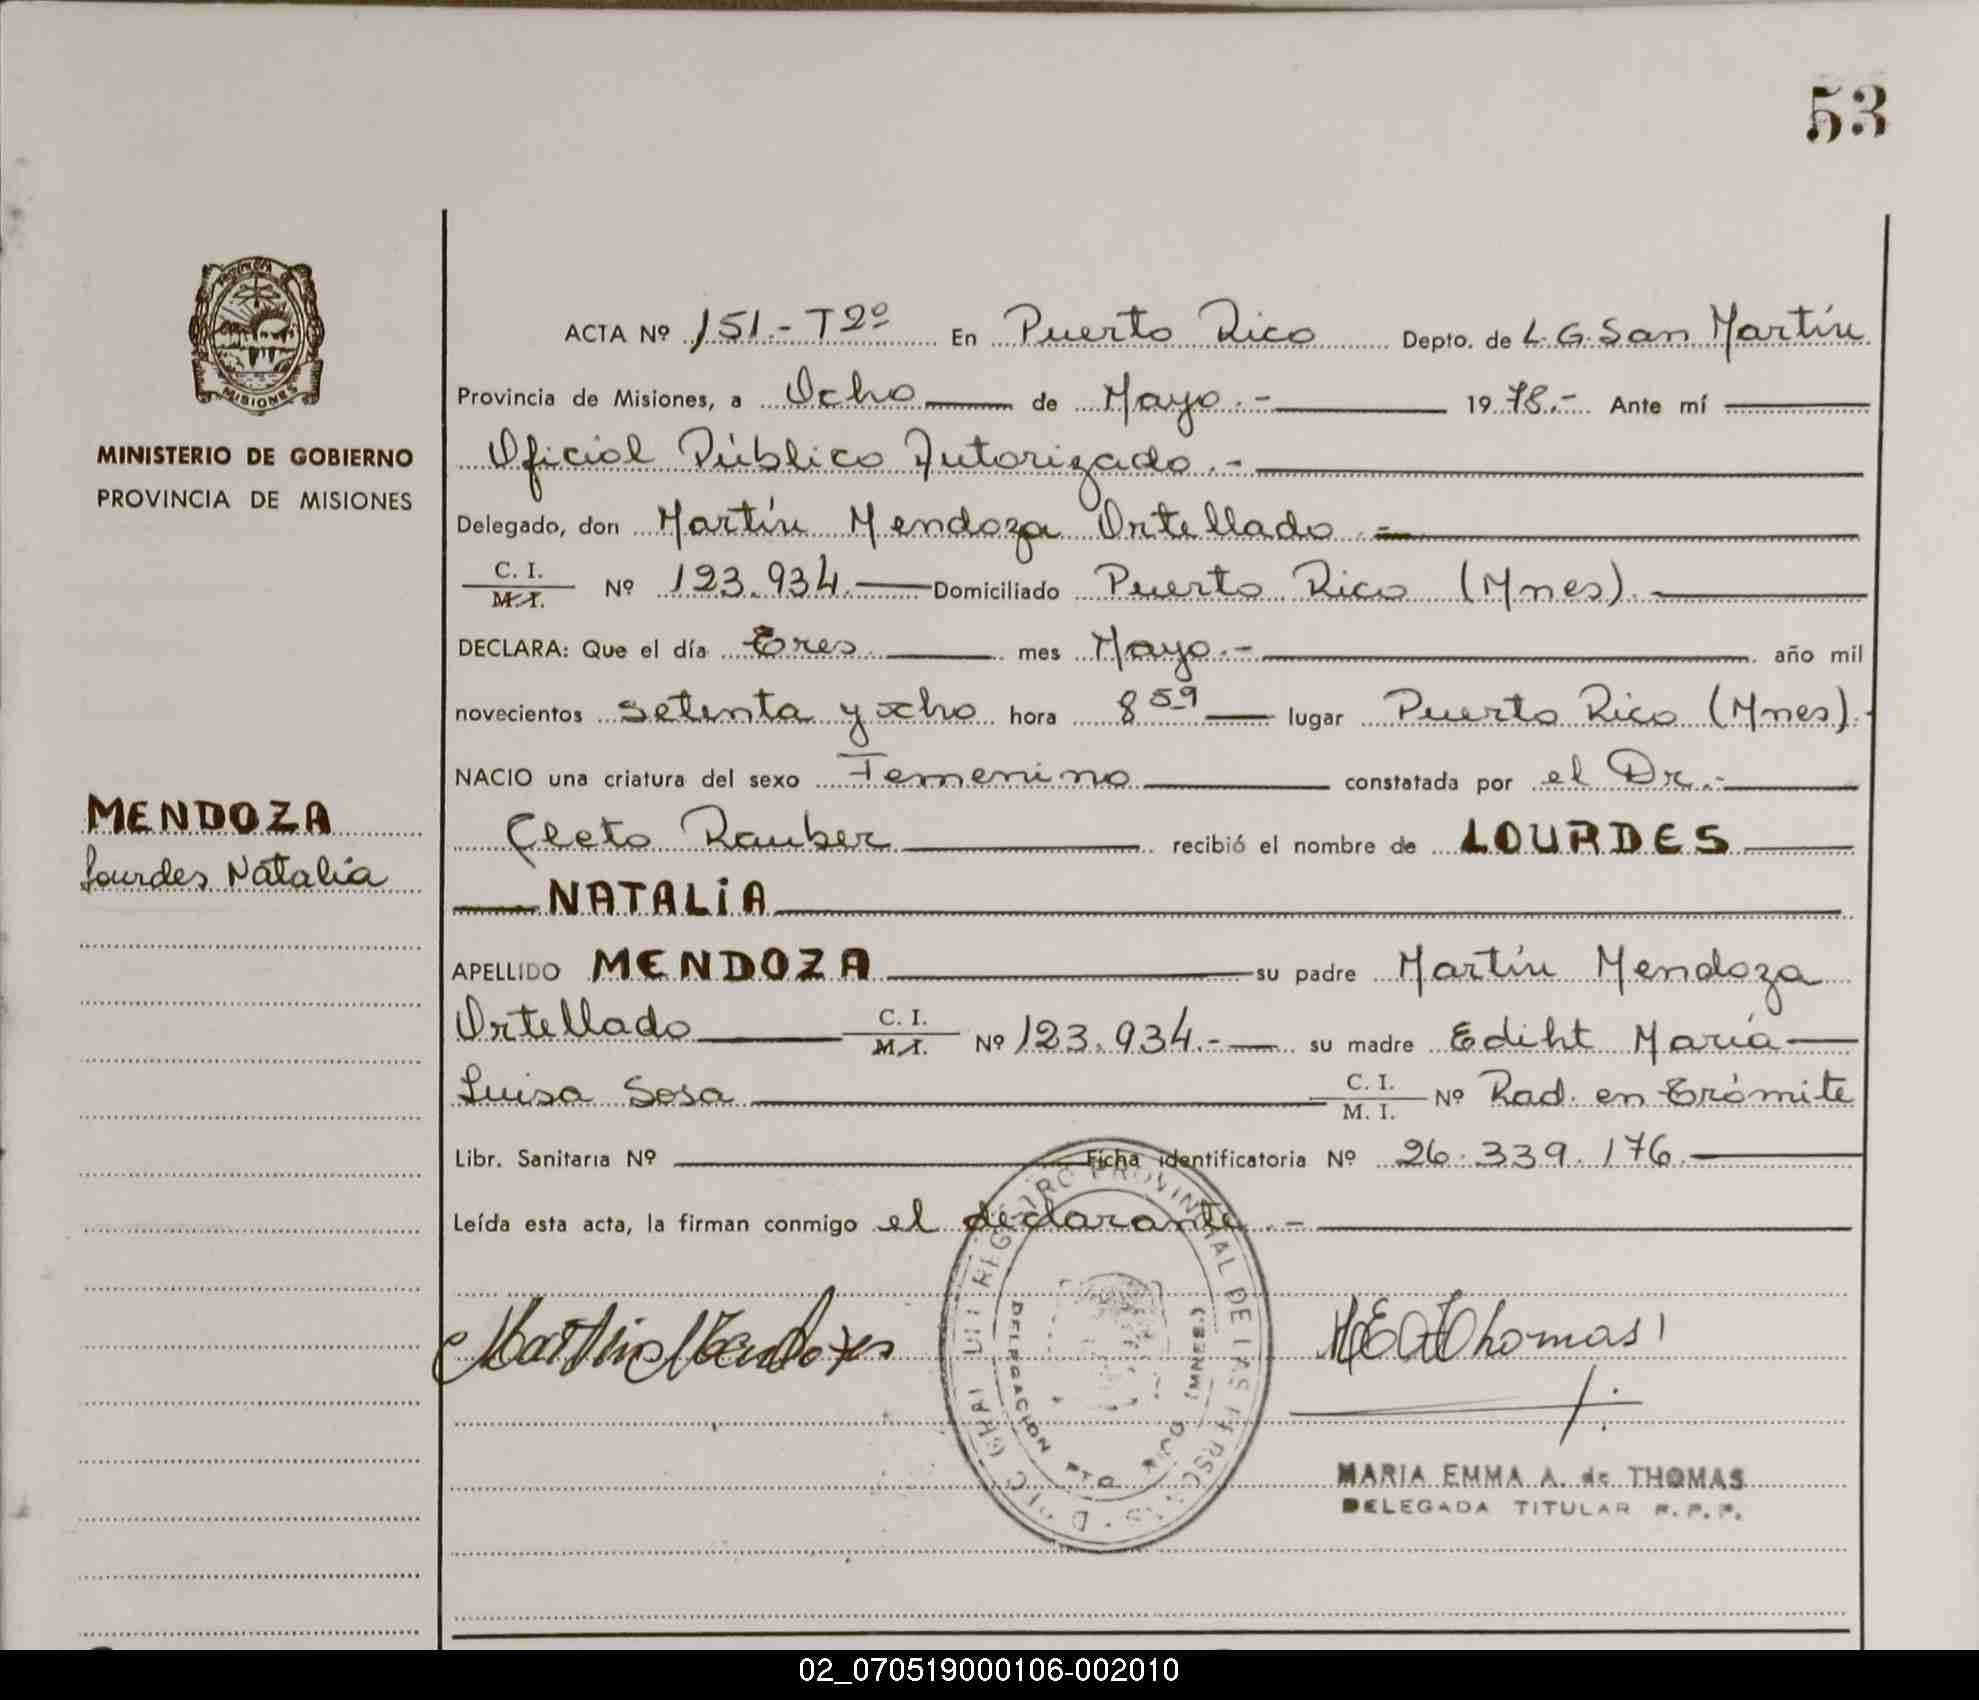 53
ACTA Nº 151.- T2º En Puerto Rico Depto. de L.G. San Martín
Provincia de Misiones, a Ocho de Mayo.- 1978.- Ante mí
Oficial Público Autorizado.-
MINISTERIO DE GOBIERNO
PROVINCIA DE MISIONES
Delegado, don Martín Mendoza Ortellado.=
C. I.
M.I. Nº 123.934. Domiciliado Puerto Rico (Mnes).
DECLARA: Que el día Tres mes Mayo.- año mil
novecientos setenta y ocho hora 8 59 lugar Puerto Rico (Mnes).
NACIO una criatura del sexo Femenino constatada por el Dr.-
MENDOZA
Lourdes Natalia
Cleto Rauber recibió el nombre de LOURDES
NATALiA
APELLIDO MENDOZA su padre Martín Mendoza
Ortellado C. I. M.I. Nº 123.934.- su madre Ediht María
Luisa Sosa C. I. M. I. Nº Rad. en trámite
Libr. Sanitaria Nº Ficha identificatoria Nº 26.339.176.
Leída esta acta, la firman conmigo el declarante.-
Martin Mendoza
MEAThomas
REGISTRO PROVINCIAL DE LAS PERSONAS
DELEGACION PTO. RICO (MNES.)
MISIONES
MARIA EMMA A. de THOMAS
DELEGADA TITULAR R.P.P.
02_070519000106-002010